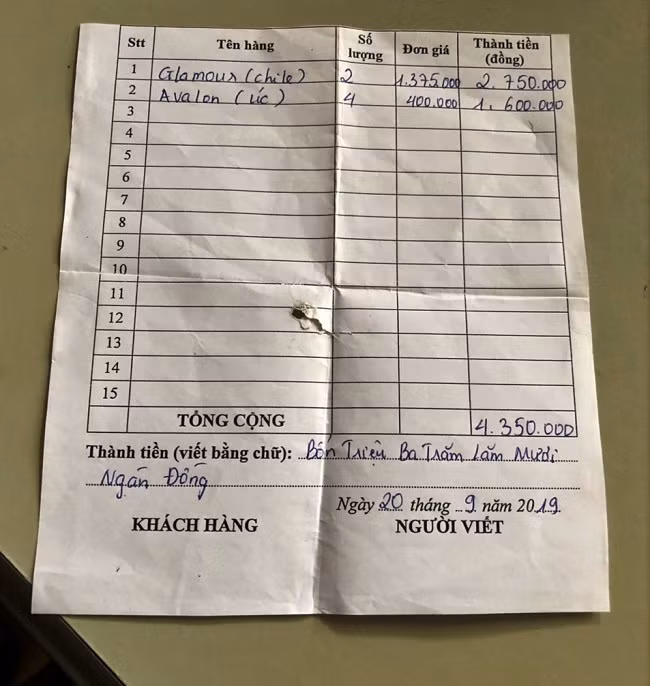 Stt Tên hàng Số lượng Đơn giá Thành tiền (đồng)
1 Glamour (chile) 2 1.375.000 2.750.000
2 Avalon (úc) 4 400.000 1.600.000
3
4
5
6
7
8
9
10
11
12
13
14
15
TỔNG CỘNG 4.350.000
Thành tiền (viết bằng chữ): Bốn Triệu Ba Trăm Lăm Mươi
Ngàn Đồng
Ngày 20 tháng 9 năm 2019.
KHÁCH HÀNG NGƯỜI VIẾT